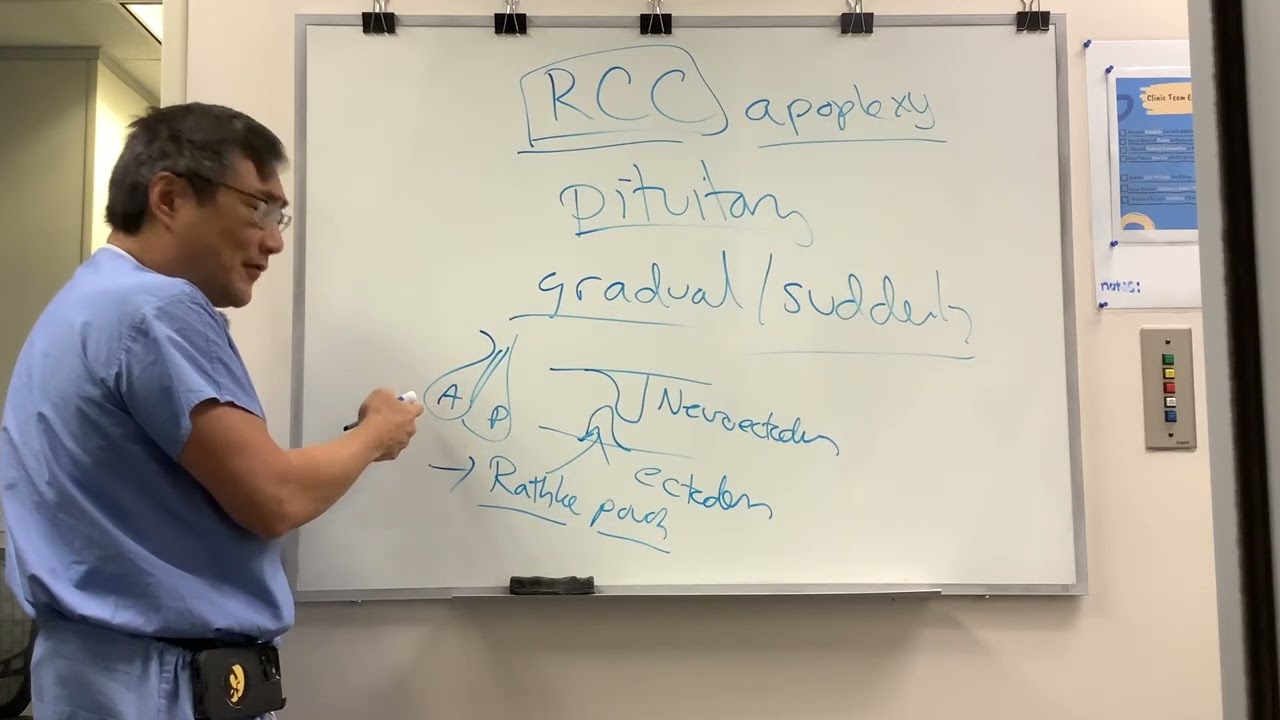 RCC apoplexy
Pituitary
gradual/suddenly
A
P
Neuroectoderm
ectoderm
→ Rathke pouch
Clinic Team
notes: